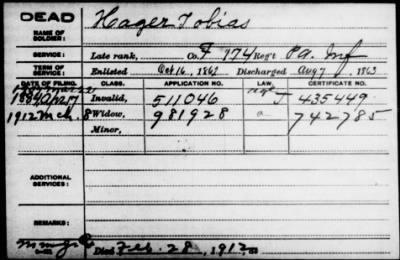 DEAD
NAME OF SOLDIER: Hager Tobias
SERVICE: Late rank, Co. F 174 Reg't Pa. Inf
TERM OF SERVICE: Enlisted Oct 16, 1862 Discharged Aug 7, 1863
DATE OF FILING. CLASS. APPLICATION NO. LAW. CERTIFICATE NO.
1884 Apr 17 Invalid, 511046 J 435449
1912 Mch. 8 Widow, 981928 a 742785
Minor,
ADDITIONAL SERVICES:
REMARKS:
Died Feb. 28, 1912